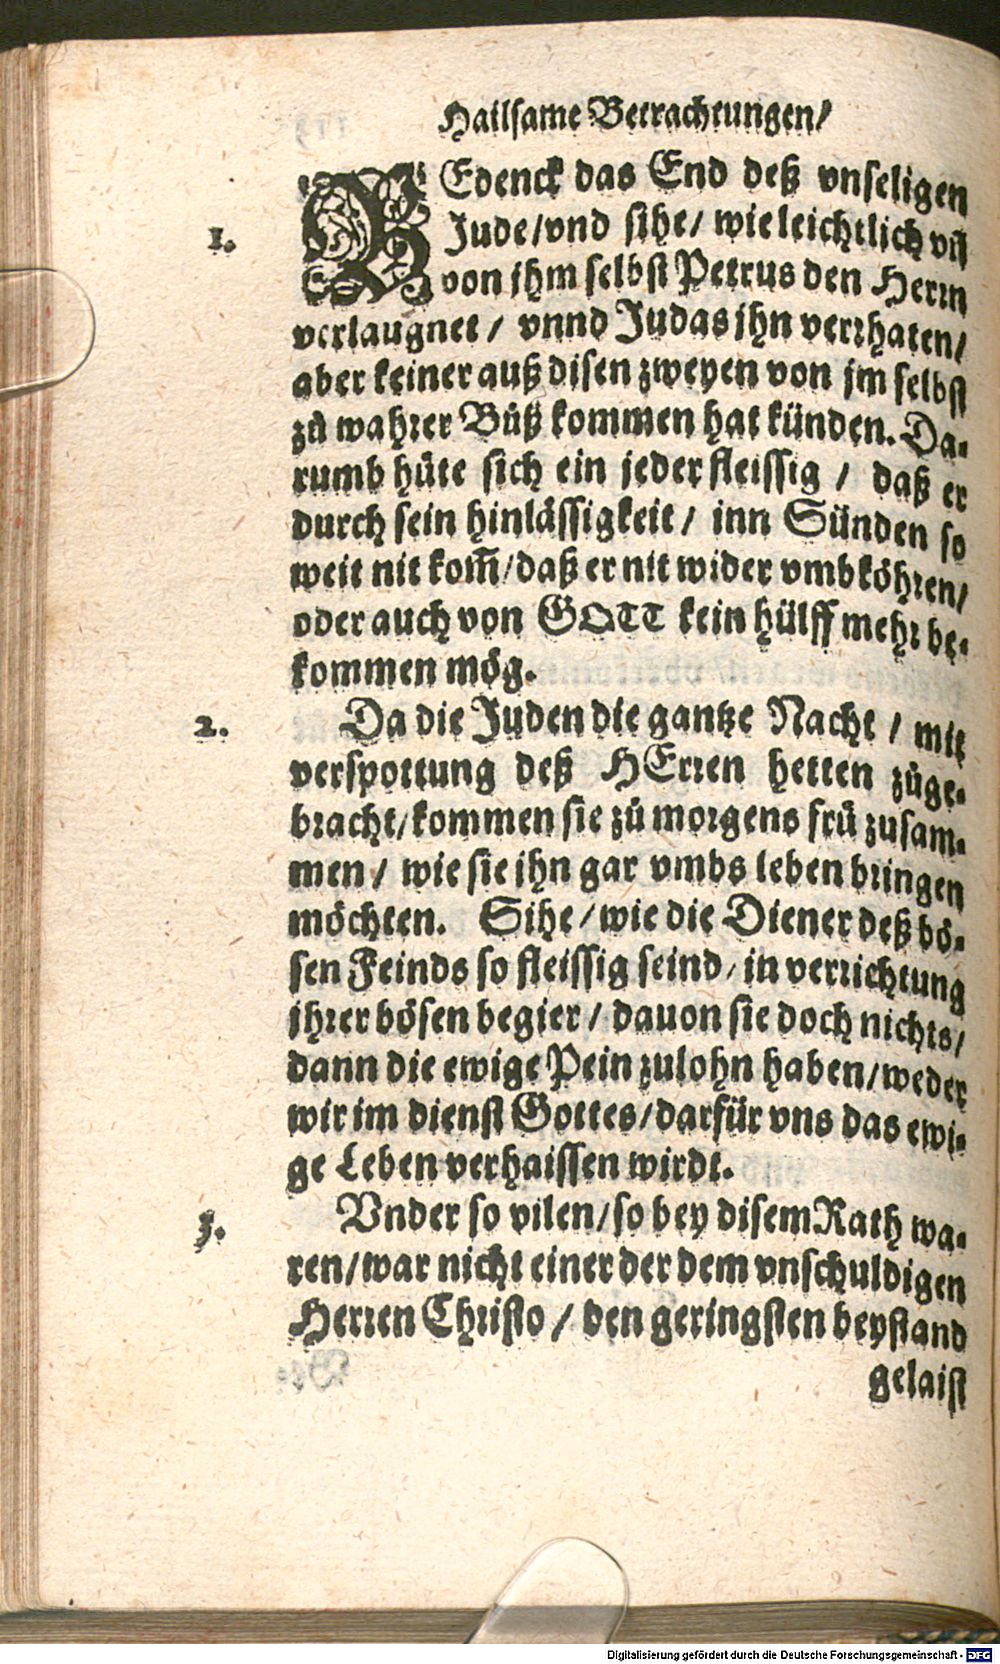 Hailsame Betrachtungen/
1. BEdenck das End deß vnseligen
Jude/vnd sihe/ wie leichtlich vñ
von jhm selbst Petrus den Herrn
verlaugnet / vnnd Judas jhn verrhaten/
aber keiner auß disen zweyen von jm selbst
zů wahrer Bůß kommen hat künden. Da-
rumb hüte sich ein jeder fleissig / daß er
durch sein hinlässigkeit/ inn Sünden so
weit nit kom̃/daß er nit wider vmbköhren/
oder auch von GOTT kein hülff mehr be-
kommen mög.
2. Da die Juden die gantze Nacht / mit
verspottung deß HErren hetten zůge-
bracht/kommen sie zů morgens frü zusam-
men / wie sie jhn gar vmbs leben bringen
möchten. Sihe/wie die Diener deß bö-
sen Feinds so fleissig seind/in verrichtung
jhrer bösen begier / dauon sie doch nichts/
dann die ewige Pein zulohn haben/weder
wir im dienst Gottes/darfür vns das ewi-
ge Leben verhaissen wirdt.
3. Vnder so vilen/so bey disem Rath wa-
ren/war nicht einer der dem vnschuldigen
Herren Christo / den geringsten beystand
gelaist
Digitalisierung gefördert durch die Deutsche Forschungsgemeinschaft - DFG